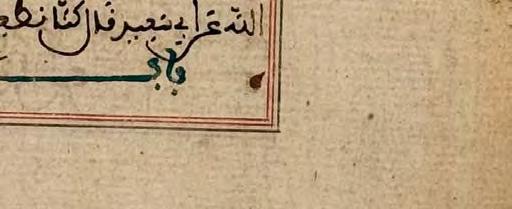 الله عن ابي سعيد قال كنا نطعم
باب